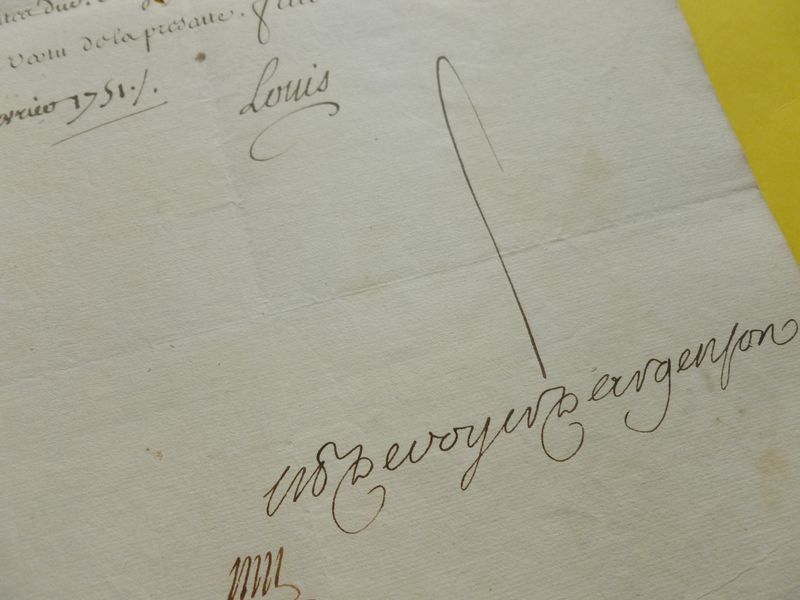 vertu de la presente.
fevrier 1751./.
Louis
M De voyer D argenson